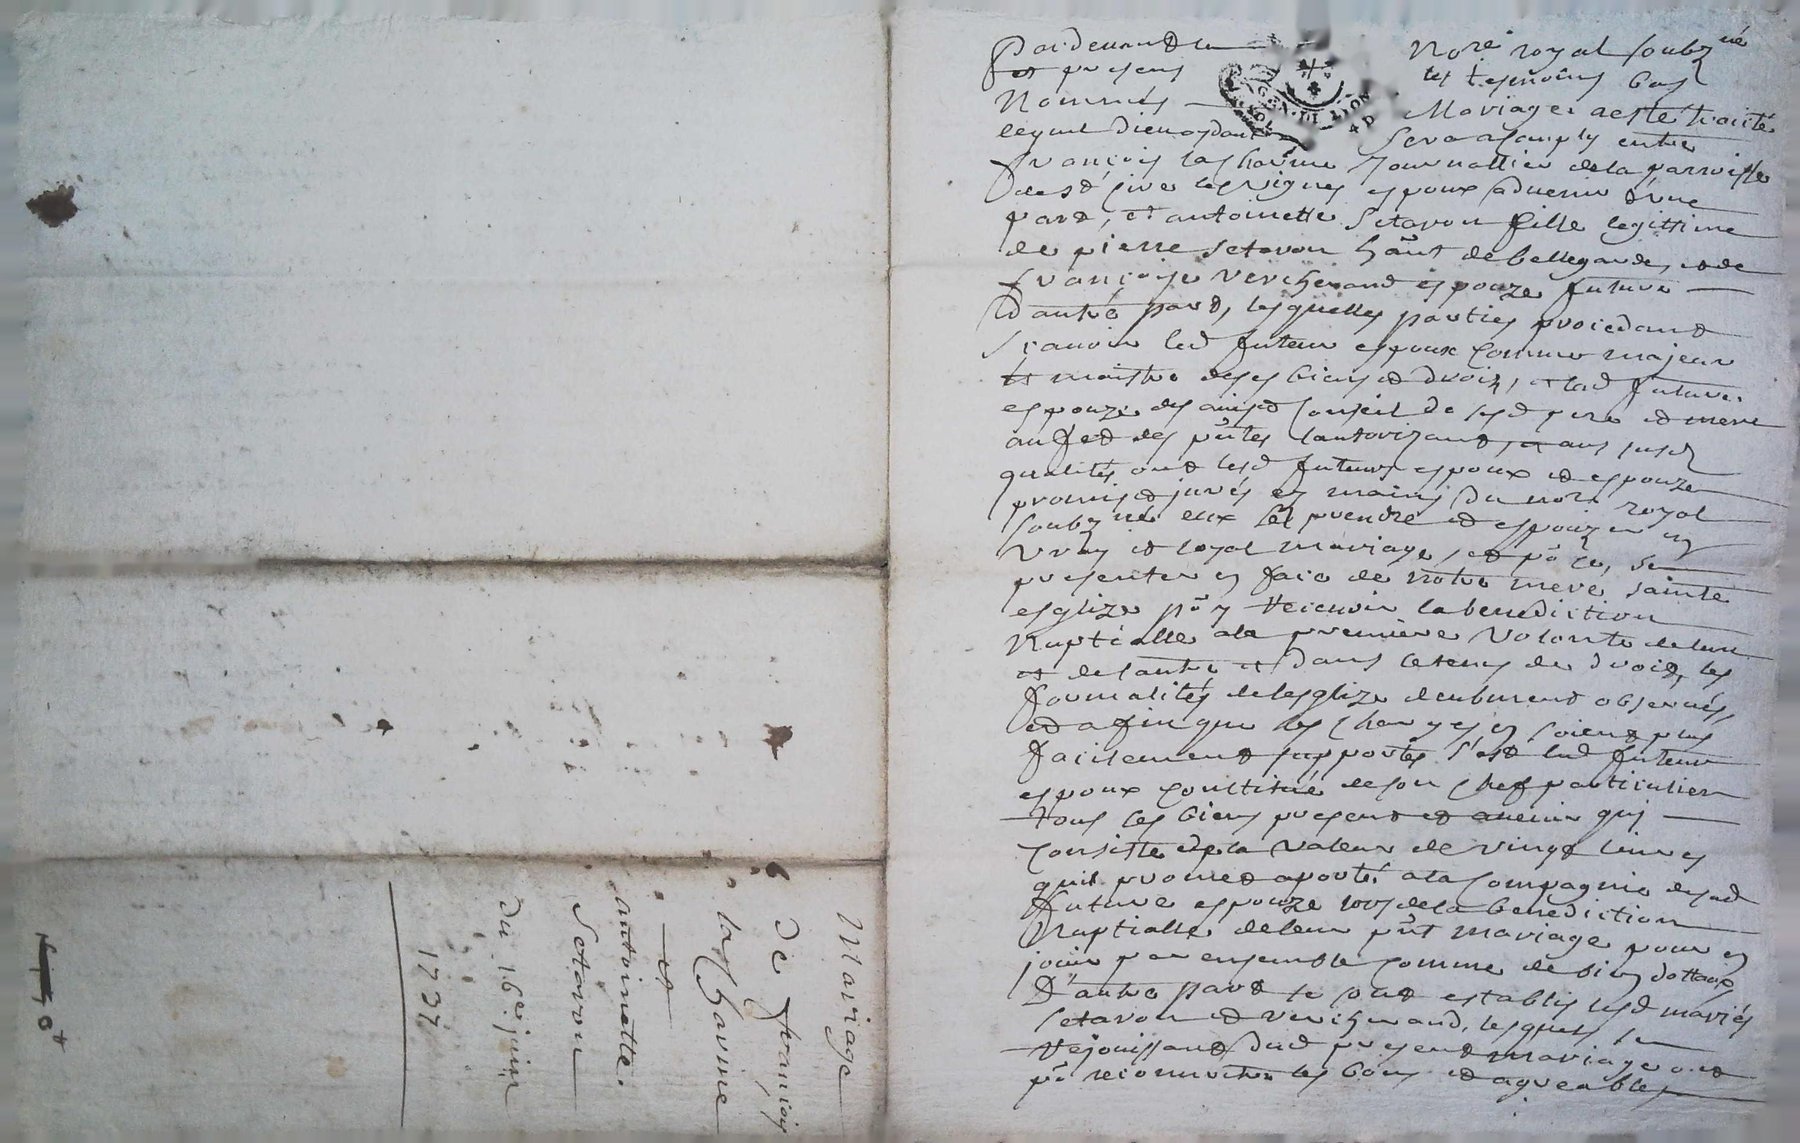 Mariage
De francois
lacharme
et
antoinette
Setavon
du 16e juin
1737
Pardevant le Nore royal soubzné
et presens les tesmoins bas
Nommés Mariage a esté traité
lequel dieu aydant sera acomply entre
françois lacharme Journallier de la parroisse
de st les vignes espoux advenir d'une
part, et antoinette Setavon fille legittime
de pierre Setavon hânt de bellegarde, et de
françoise Vercherand espouze future
d'autre part, lesquelles parties procedant
sçavoir led futeur espoux comme majeur
et maistre de ses biens et droits, et lad future
espouze des avis et Conseil de sesd pere et mere
au fet des pntes lautorizant, et aus susd
qualités ont lesd futeurs espoux et espouze
promis et jurés es mains du nore royal
soubzné eux se prendre et espouzer en
vray et loyal mariage, et pr ce, se
presenter en face de notre mere sainte
esglize pr y recevoir la benediction
Nuptialle a la premiere volonté de lun
et de lautre et dans le tems de droit, les
formalités de lesglize deubment observés,
et afin que les charges en soient plus
facilement supportés s'est led futeur
espoux constitué de son chef particulier
tous les biens present et avenir qui
Consiste de la valeur de vingt livres
quil promet aporté a la Compagnie de sad
future espouze lors de la benediction
Nuptialle de leur pnt mariage pour en
jouir par ensemble comme de bien dottaux
D'autre part se sont establis lesd mariés
Setavon et vercherand, lesquels se
rejouissant dud present mariage et
pr reconnoitre les bons et agreables